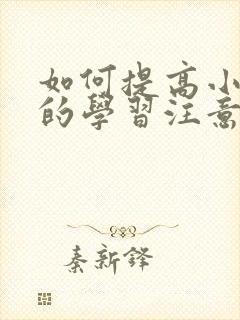 如何提高小
的學習注意
秦新鋒